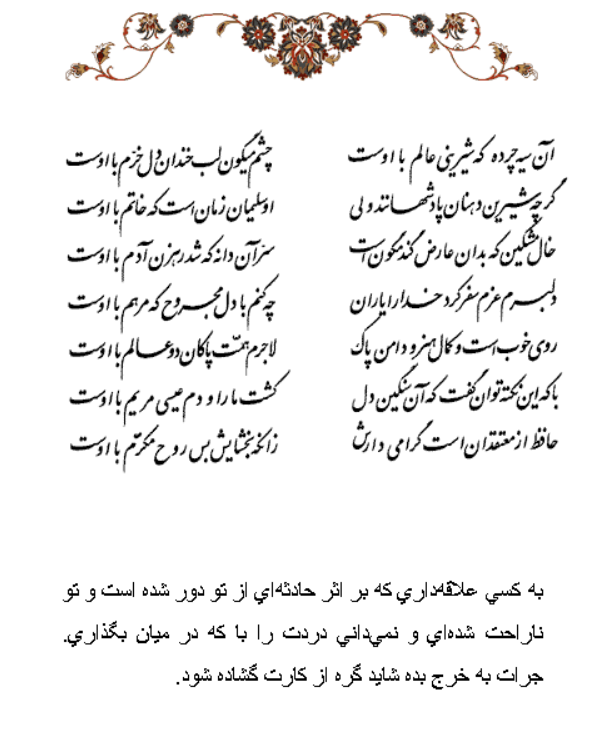 آن سیه چرده که شیرینی عالم با اوست چشم میگون لب خندان دل خرم با اوست
گر چه شیرین دهنان پادشهانند ولی او سلیمان زمان است که خاتم با اوست
خال مشکین که بدان عارض گندمگون است سر آن دانه که شد رهزن آدم با اوست
دلبرم عزم سفر کرد خدا را یاران چه کنم با دل مجروح که مرهم با اوست
روی خوب است و کمال هنر و دامن پاک لاجرم همّت پاکان دو عالم با اوست
با که این نکته توان گفت که آن سنگین دل کشت ما را و دم عیسی مریم با اوست
حافظ از معتقدان است گرامی دارش زانکه بخشایش بس روح مکرّم با اوست
به كسي علاقه‌داري كه بر اثر حادثه‌اي از تو دور شده است و تو
ناراحت شده‌اي و نمي‌داني دردت را با كه در ميان بگذاري.
جرات به خرج بده شايد گره از كارت گشاده شود.